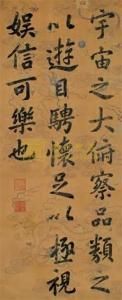 宇宙之大俯察品類之
以遊目騁懷足以極視
娛信可樂也